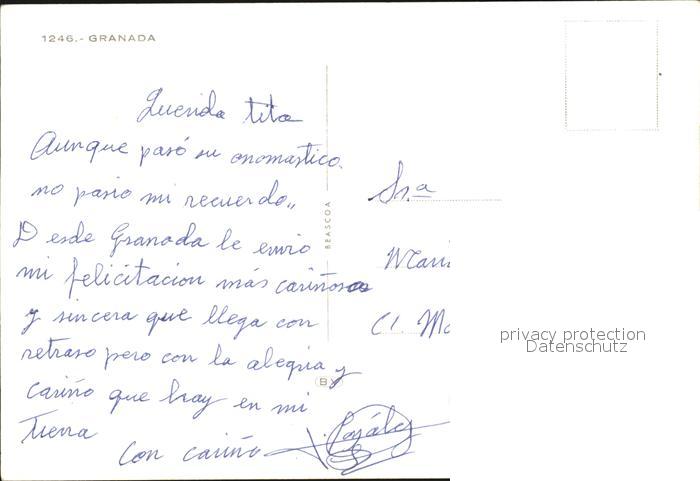 1246.- GRANADA
Querida tita
Aunque pasó su onomastico.
no paso mi recuerdo,,
Desde Granada le envio
mi felicitacion más cariñosa
y sincera que llega con
retraso pero con la alegria y
cariño que hay en mi
Tierra
Con cariño
BEASCOA
Sra
C/.
privacy protection
Datenschutz